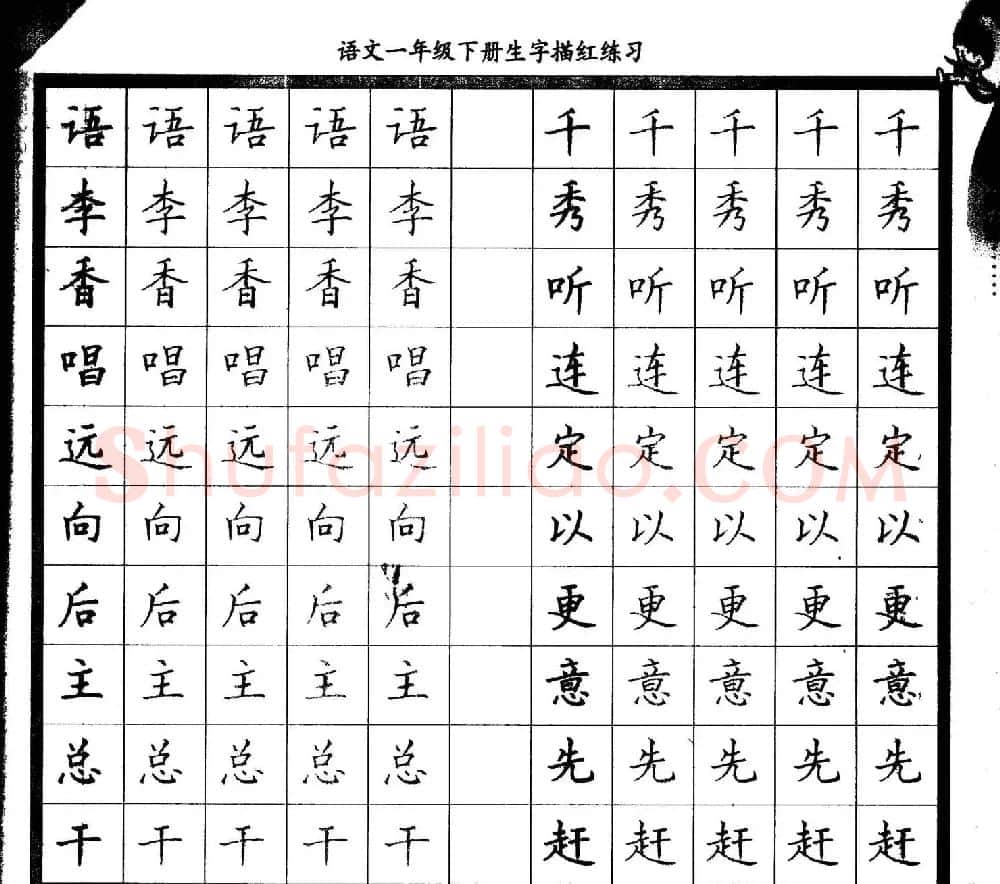 语文一年级下册生字描红练习
语 语 语 语 语 千 千 千 千 千
李 李 李 李 李 秀 秀 秀 秀 秀
香 香 香 香 香 听 听 听 听 听
唱 唱 唱 唱 唱 连 连 连 连 连
远 远 远 远 远 定 定 定 定 定
Shufaziliao.COM
向 向 向 向 向 以 以 以 以 以
后 后 后 后 后 更 更 更 更 更
主 主 主 主 主 意 意 意 意 意
总 总 总 总 总 先 先 先 先 先
干 干 干 干 干 赶 赶 赶 赶 赶